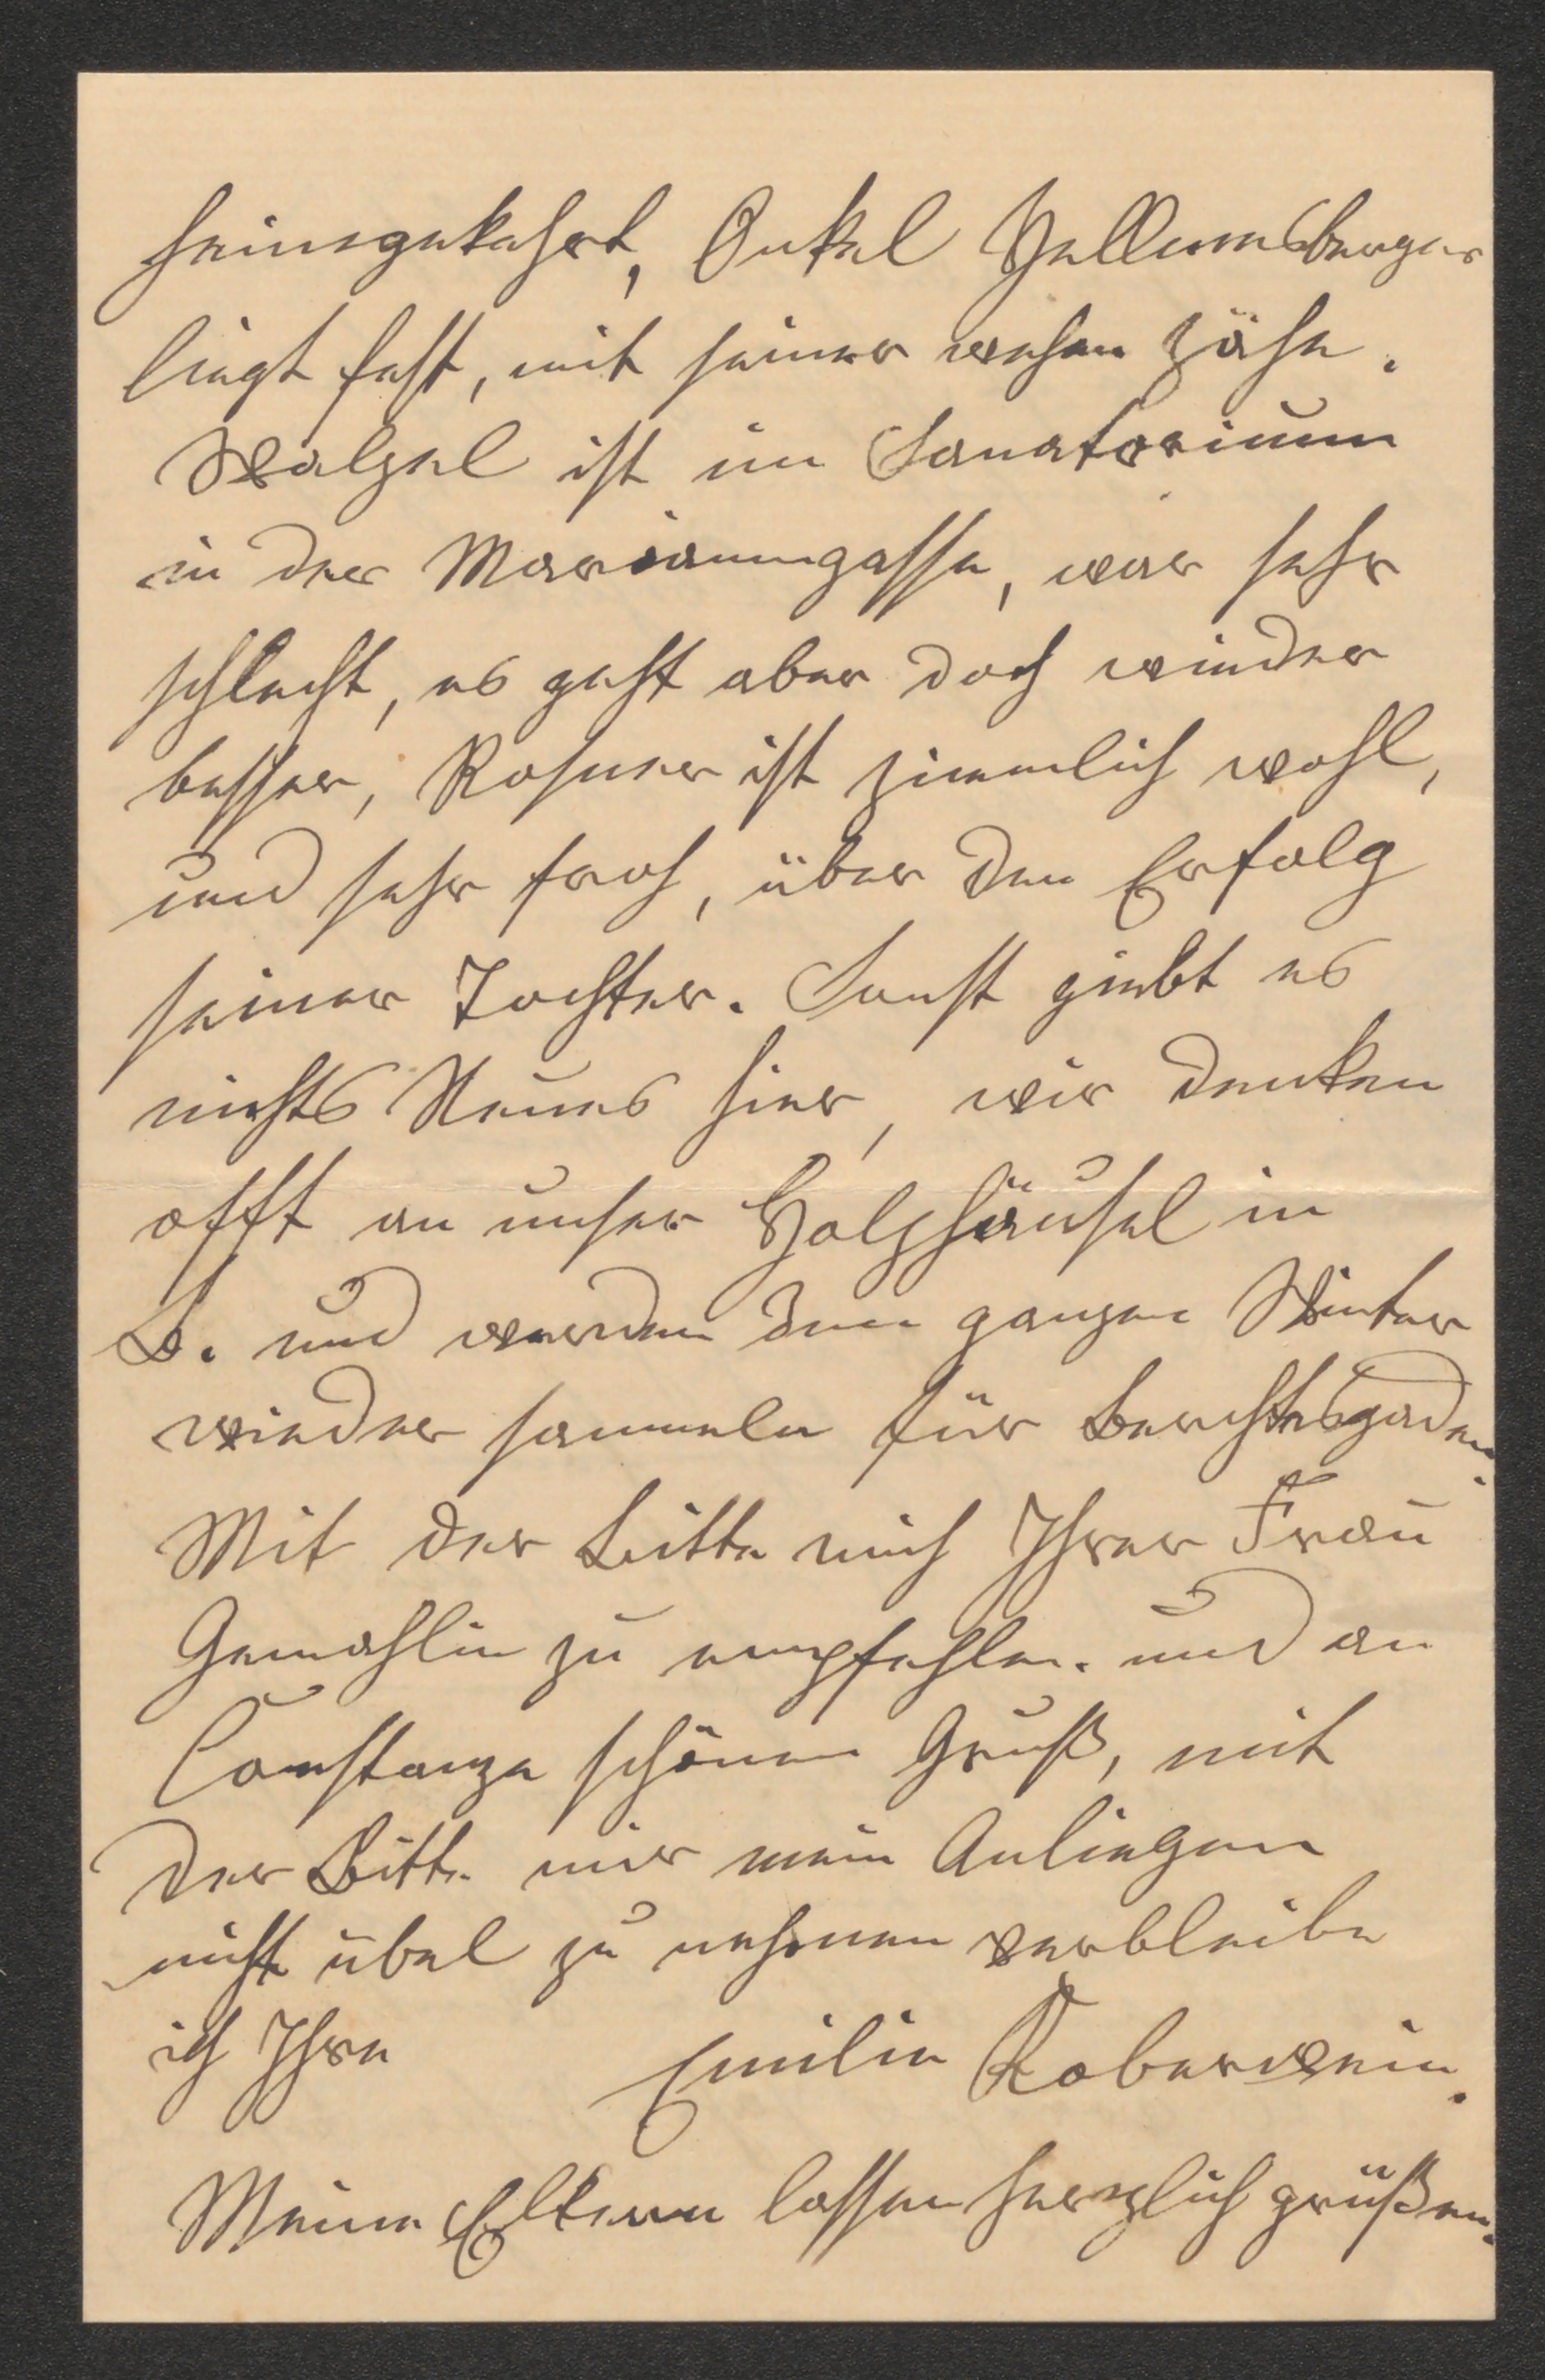 heimgekehrt, Onkel Hellmesberger
liegt fest, mit seiner wehen Zähe.
Walzel ist im Sanatorium
in der Mariannngasse, war sehr
schlecht, es geht aber doch wieder
besser, Rosner ist ziemlich wohl,
und sehr froh, über den Erfolg
seiner Tochter. Sonst giebt es
nichts Neues hier, wir denken
offt an unser Holzhäusel in
B. und werden den ganzen Winter
wieder sammeln für Berchtesgaden.
Mit der Bitte mich Ihrer Frau
Gemahlin zu empfehlen. und an
Constanze schönen Gruß, mit
der Bitte mir mein Anliegen
nicht übel zu nehmen verbleibe
ich Ihre Emilie Koberwein.
Meine Eltern lassen herzlich grüßen.